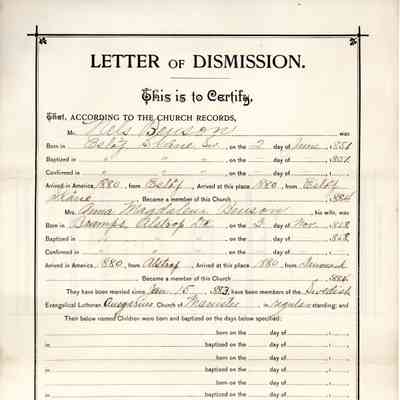 LETTER OF DISMISSION.
This is to Certify,
That, ACCORDING TO THE CHURCH RECORDS,
Mr. Nels Benson was
Born in Eslöf Skåne Sw., on the 2 day of June 1851
Baptized in " " , on the — day of — 1851
Confirmed in " " , on the — day of —
Arrived in America, 1880, from Eslöf, Arrived at this place 1880, from Eslöf
Skåne Become a member of this Church 1884
Mrs. Anna Magdalena Benson, his wife, was
Born in Alstrop on the 2 day of Nov. 1858
Baptized in " " , on the day of 1858
Confirmed in " " , on the day of
Arrived in America, 1880, from Alstrop, Arrived at this place 1880, from
Become a member of this Church
They have been married since Jan 15 1883, have been members of the Swedish
Evangelical Lutheran Church of Manister regular standing; and
Then below named Children were born and baptized on the days below specified:
born on the day of
in baptized on the day of
born on the day of
in baptized on the day of
born on the day of
in baptized on the day of
born on the day of